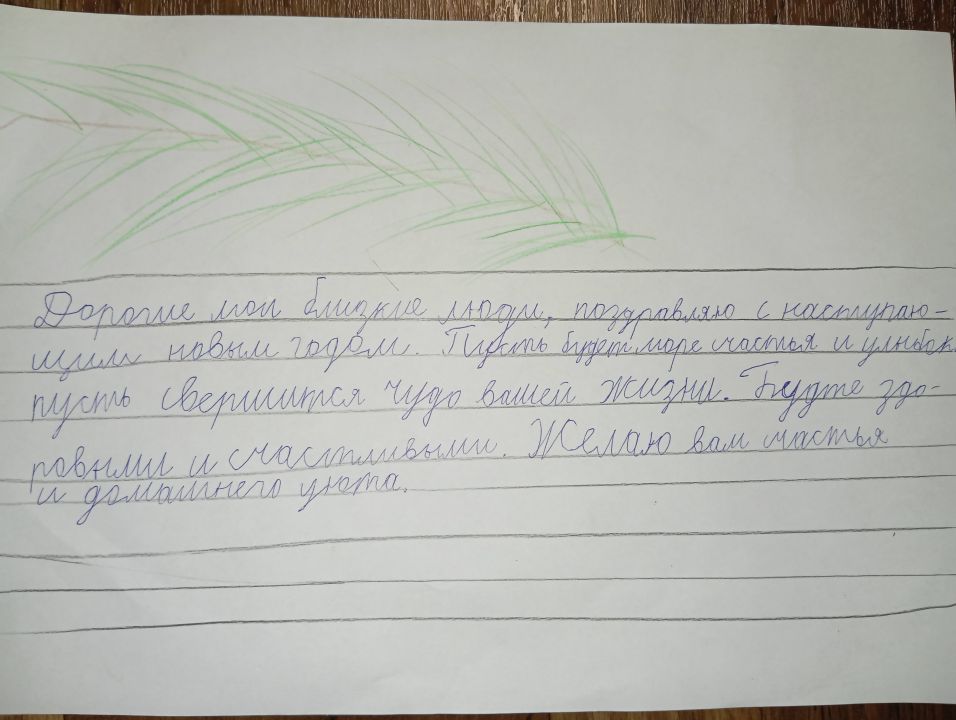 Дорогие мои близкие люди, поздравляю с наступаю-
щим новым годом. Пусть будет море счастья и улыбок
пусть свершится чудо вашей жизни. Будте здо-
ровыми и счастливыми. Желаю вам счастья
и домашнего уюта.